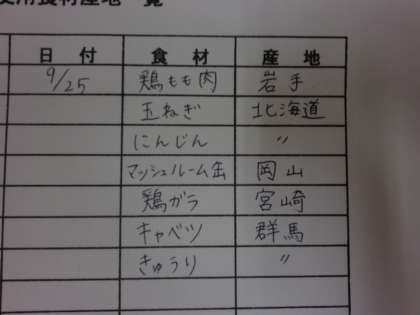 用食材産地一覧
日付 食材 産地
9/25 鶏もも肉 岩手
玉ねぎ 北海道
にんじん 〃
マッシュルーム缶 岡山
鶏ガラ 宮崎
キャベツ 群馬
きゅうり 〃